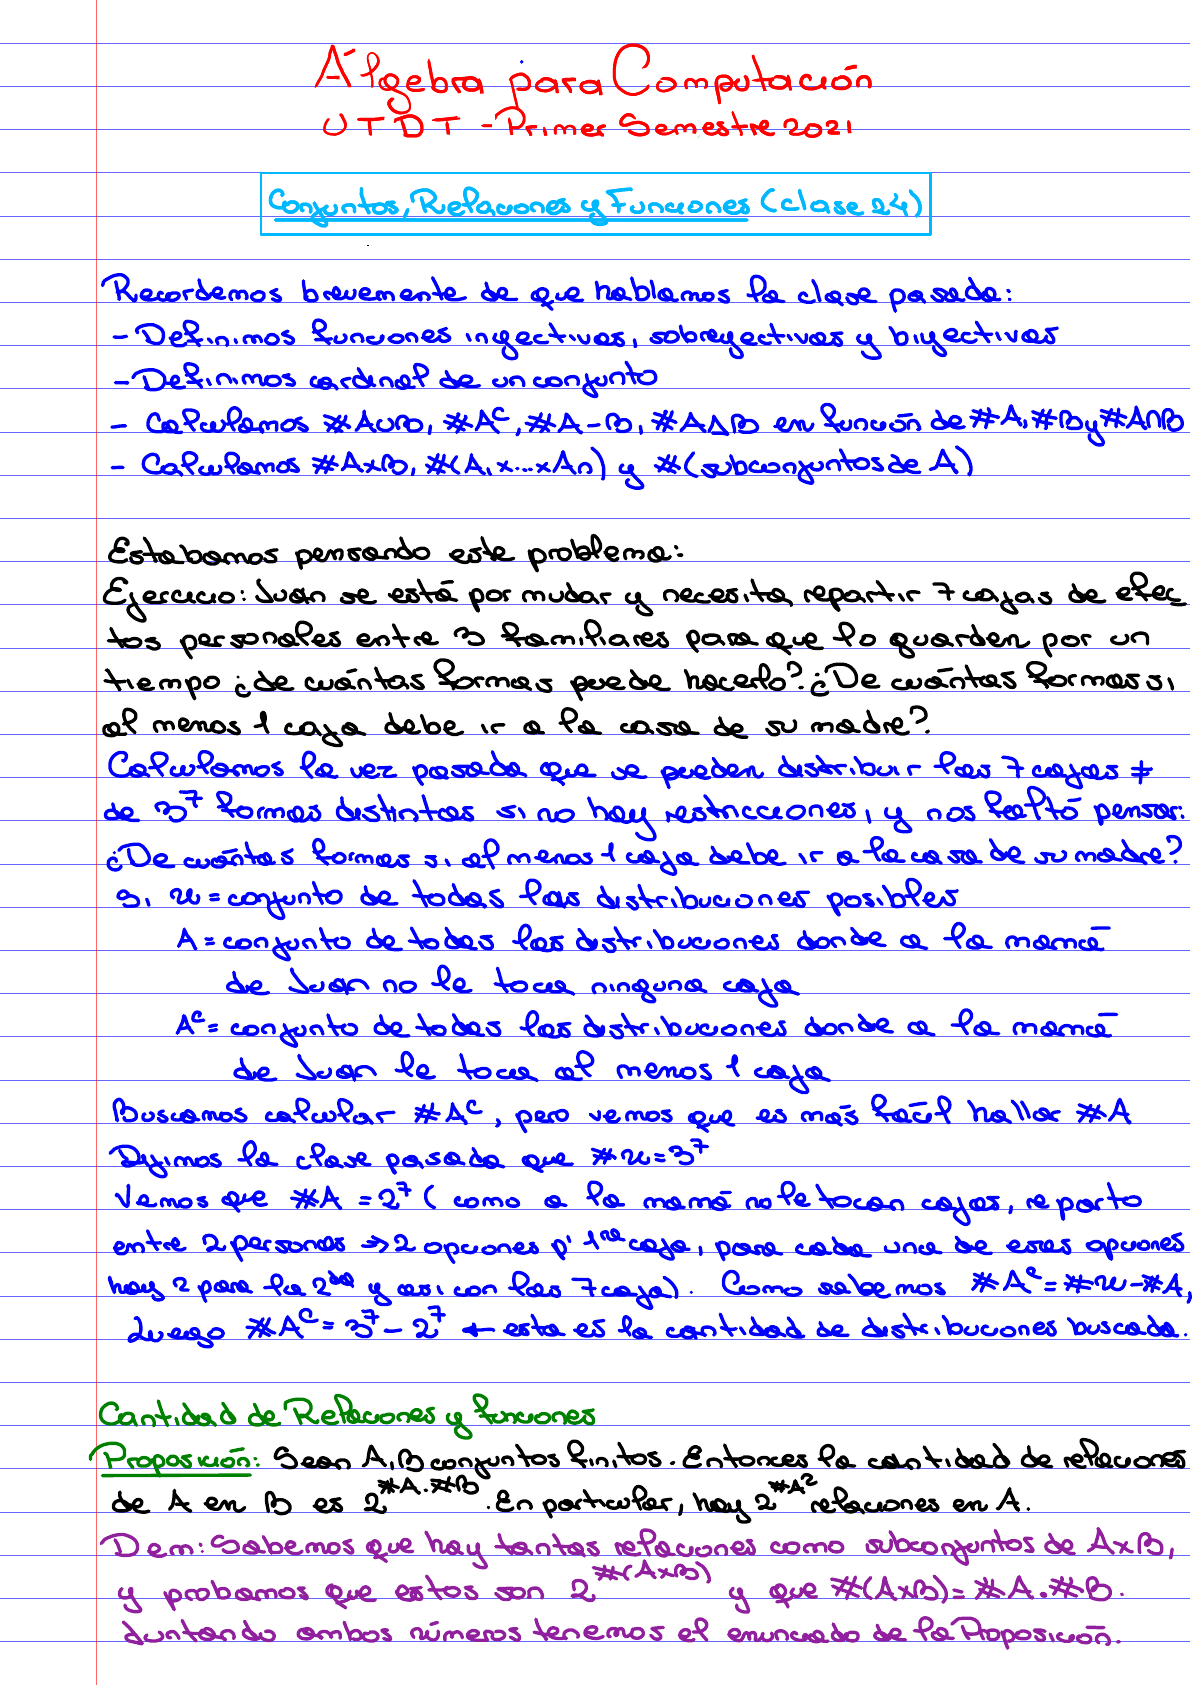 Álgebra para Computación
UTDT - Primer Semestre 2021
Conjuntos, Relaciones y Funciones (clase 24)
Recordemos brevemente de que hablamos la clase pasada:
- Definimos funciones inyectivas, sobreyectivas y biyectivas
- Definimos cardinal de un conjunto
- Calculamos #A∪B, #Aᶜ, #A-B, #A△B en función de #A, #B y #A∩B
- Calculamos #A×B, #(A₁×...×An) y #(subconjuntos de A)
Estabamos pensando este problema:
Ejercicio: Juan se está por mudar y necesita repartir 7 cajas de efec
tos personales entre 3 familiares para que lo guarden por un
tiempo ¿de cuántas formas puede hacerlo? ¿De cuántas formas si
al menos 1 caja debe ir a la casa de su madre?
Calculamos la vez pasada que se pueden distribuir las 7 cajas ≠
de 3⁷ formas distintas si no hay restricciones, y nos faltó pensar:
¿De cuántas formas si al menos 1 caja debe ir a la casa de su madre?
Si U = conjunto de todas las distribuciones posibles
A = conjunto de todas las distribuciones donde a la mamá
de Juan no le toca ninguna caja
Aᶜ = conjunto de todas las distribuciones donde a la mamá
de Juan le toca al menos 1 caja
Buscamos calcular #Aᶜ, pero vemos que es más fácil hallar #A
Dijimos la clase pasada que #U = 3⁷
Vemos que #A = 2⁷ (como a la mamá no le tocan cajas, reparto
entre 2 personas → 2 opciones p' 1ra caja, para cada una de esas opciones
hay 2 para la 2da y así con las 7 caja). Como sabemos #Aᶜ = #U - #A,
Luego #Aᶜ = 3⁷ - 2⁷ ← esta es la cantidad de distribuciones buscada.
Cantidad de Relaciones y funciones
Proposición: Sean A, B conjuntos finitos. Entonces la cantidad de relaciones
de A en B es 2^#A.#B. En particular, hay 2^#A² relaciones en A.
Dem: Sabemos que hay tantas relaciones como subconjuntos de A×B,
y probamos que estos son 2^#(A×B) y que #(A×B) = #A.#B.
Juntando ambos números tenemos el enunciado de la Proposición.